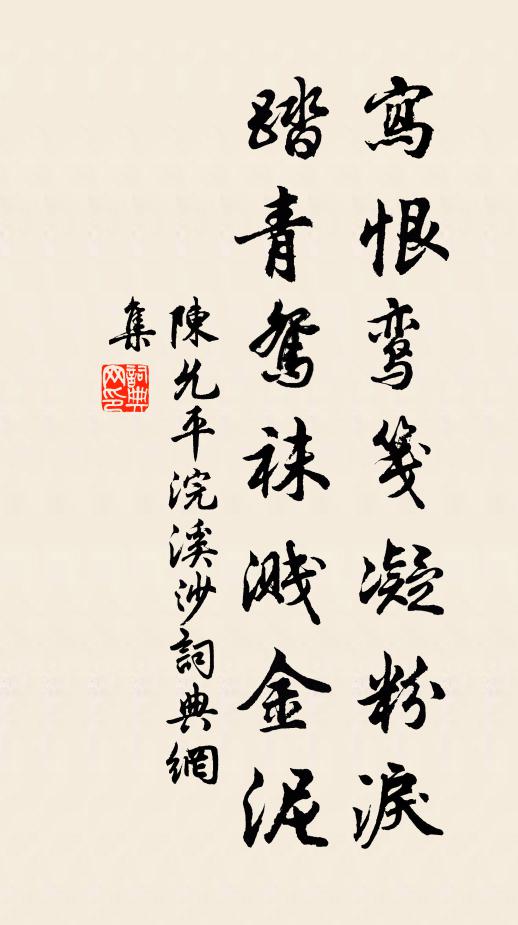 寫恨鸾箋凝粉淚
踏青鴛袜溅金泥
陳允平浣溪沙詞典網
集
詞典
网印